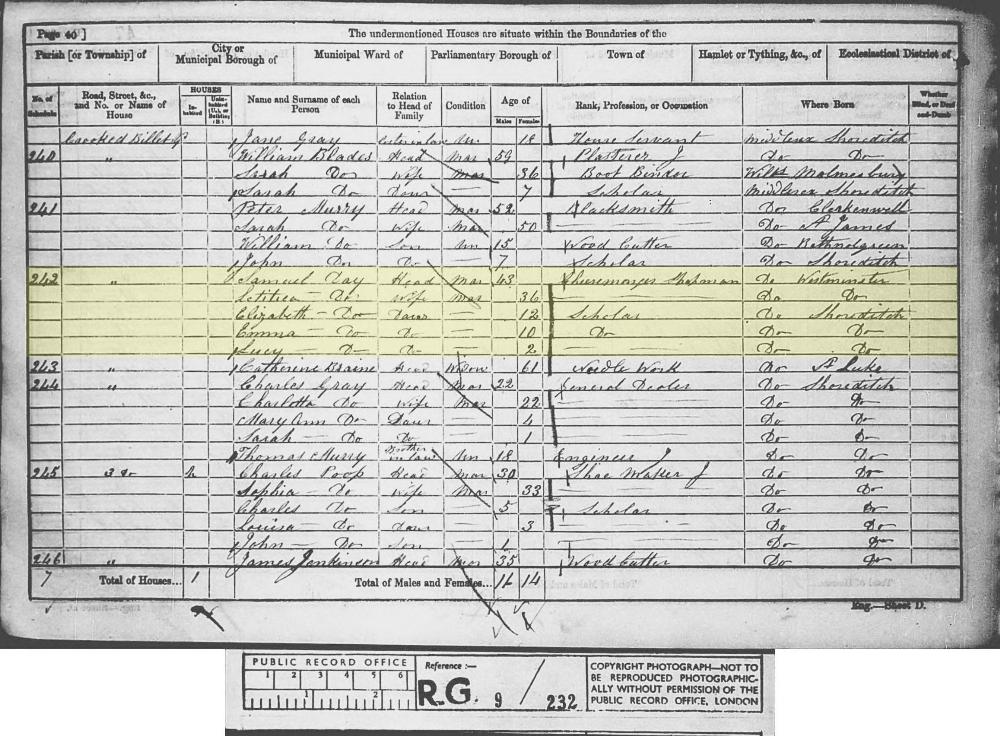 Page 40 ]
The undermentioned Houses are situate within the Boundaries of the
Parish [or Township] of
City or Municipal Borough of
Municipal Ward of
Parliamentary Borough of
Town of
Hamlet or Tything, &c., of
Ecclesiastical District of
No. of Schedule
Road, Street, &c., and No. or Name of House
HOUSES
Inhabited
Uninhabited (U.), or Building (B.)
Name and Surname of each Person
Relation to Head of Family
Condition
Age of
Males Females
Rank, Profession, or Occupation
Where Born
Whether Blind, or Deaf-and-Dumb
Crooked Billet Jane Gray Un 18 House Servant Middlesex Shoreditch
240 " William Blades Head Mar 59 Plasterer Do Do
Sarah Do Wife Mar 36 Boot Binder Wilts Malmesbury
Sarah Do Daur 7 Scholar Middlesex Shoreditch
241 Peter Murry Head Mar 52 Blacksmith Do Clerkenwell
Sarah Do Wife Mar 50 Do St James
William Do Son Un 15 Wood Cutter Do Bethnalgreen
John Do Do 7 Scholar Do Shoreditch
242 " Samuel Day Head Mar 43 Do Westminster
Letitia Do Wife Mar 36 Do Do
Elizabeth Do Daur 12 Scholar Do Shoreditch
Emma Do Do 10 Do Do Do
Lucy Do Do 2 Do Do
243 " Catherine Head Widow 61 Needle Work Do St Luke
244 " Charles Gray Head Mar 22 General Dealer Do Shoreditch
Charlotte Do Wife Mar 22 Do Do
Mary Ann Do Daur 4 Do Do
Sarah Do Do 1 Do Do
Thomas Murry Brother in law Un 18 Engineer Do Do
245 3 Do 1 Charles Poop Head Mar 30 Shoe Maker Do Do
Sophia Do Wife Mar 33 Do Do
Charles Do Son 5 Scholar Do Do
Louisa Do Daur 3 Do Do
John Do Son 1 Do Do
246 " James Jenkinson Head Mar 35 Wood Cutter Do Do
7 Total of Houses... 1 Total of Males and Females... 11 14
Eng.—Sheet D.
PUBLIC RECORD OFFICE
1 2 3 4 5 6
1 2
Reference :—
R.G. 9 / 232
COPYRIGHT PHOTOGRAPH—NOT TO
BE REPRODUCED PHOTOGRAPHIC-
ALLY WITHOUT PERMISSION OF THE
PUBLIC RECORD OFFICE, LONDON